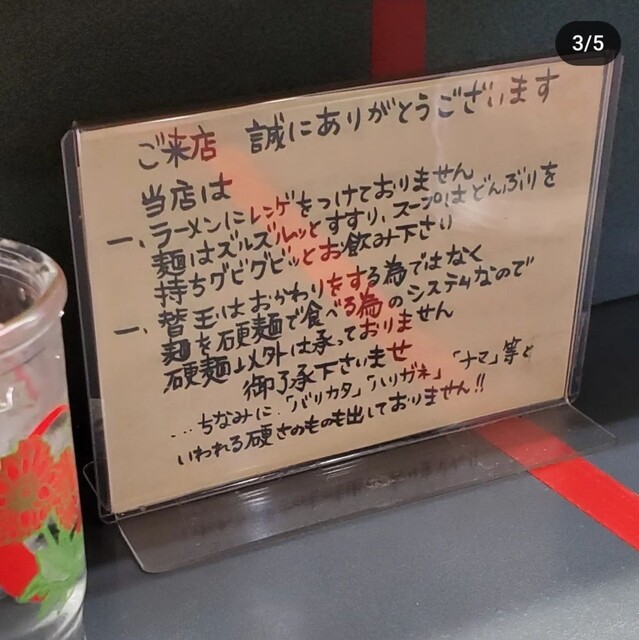 3/5
ご来店 誠にありがとうございます
当店は
一、ラーメンにレンゲをつけておりません
麺はズルズルッとすすり、スープはどんぶりを
持ちグビグビッとお飲み下さい
一、替玉はおかわりをする為ではなく
麺を硬麺で食べる為のシステムなので
硬麺以外は承っておりません
御了承下さいませ
…ちなみに「バリカタ」「ハリガネ」「ナマ」等と
いわれる硬さのものも出しておりません!!